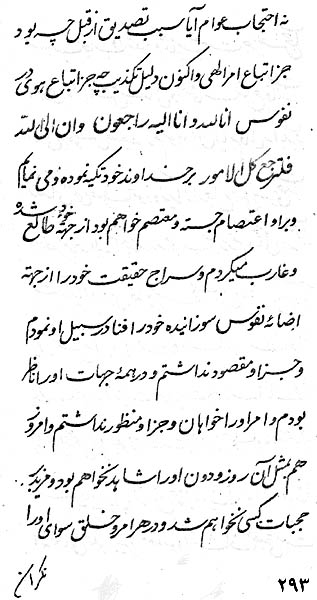 نه احتجاب عوام آیا سبب تصدیق از قبل چه بود
جز اتباع امر الهی و اکنون دلیل تکذیب چه جز اتباع هوی در
نفوس انا لله و انا الیه راجعون و ان الی الله
فلترجع کل الامور بر خداوند خود تکیه نموده و می نمایم
و براو اعتصام جسته و معتصم خواهم بود از جهة خود شده طالع
و غارب میگردم و سراج حقیقت خود را از جهته
اضائهٔ نفوس سوزانیده خود را فنا در سبیل او نمودم
و جز او مقصود نداشتم و در همهٔ جهات او را ناظر
بودم و امر او را خواهان و جز او منظور نداشتم و امروز
هم بمثل آن روز و دون او را شاهد نخواهم بود و مزید بر
حجبات کسی نخواهم شد و در هر امر و خلق سوای او را
نگران
۲۹۳